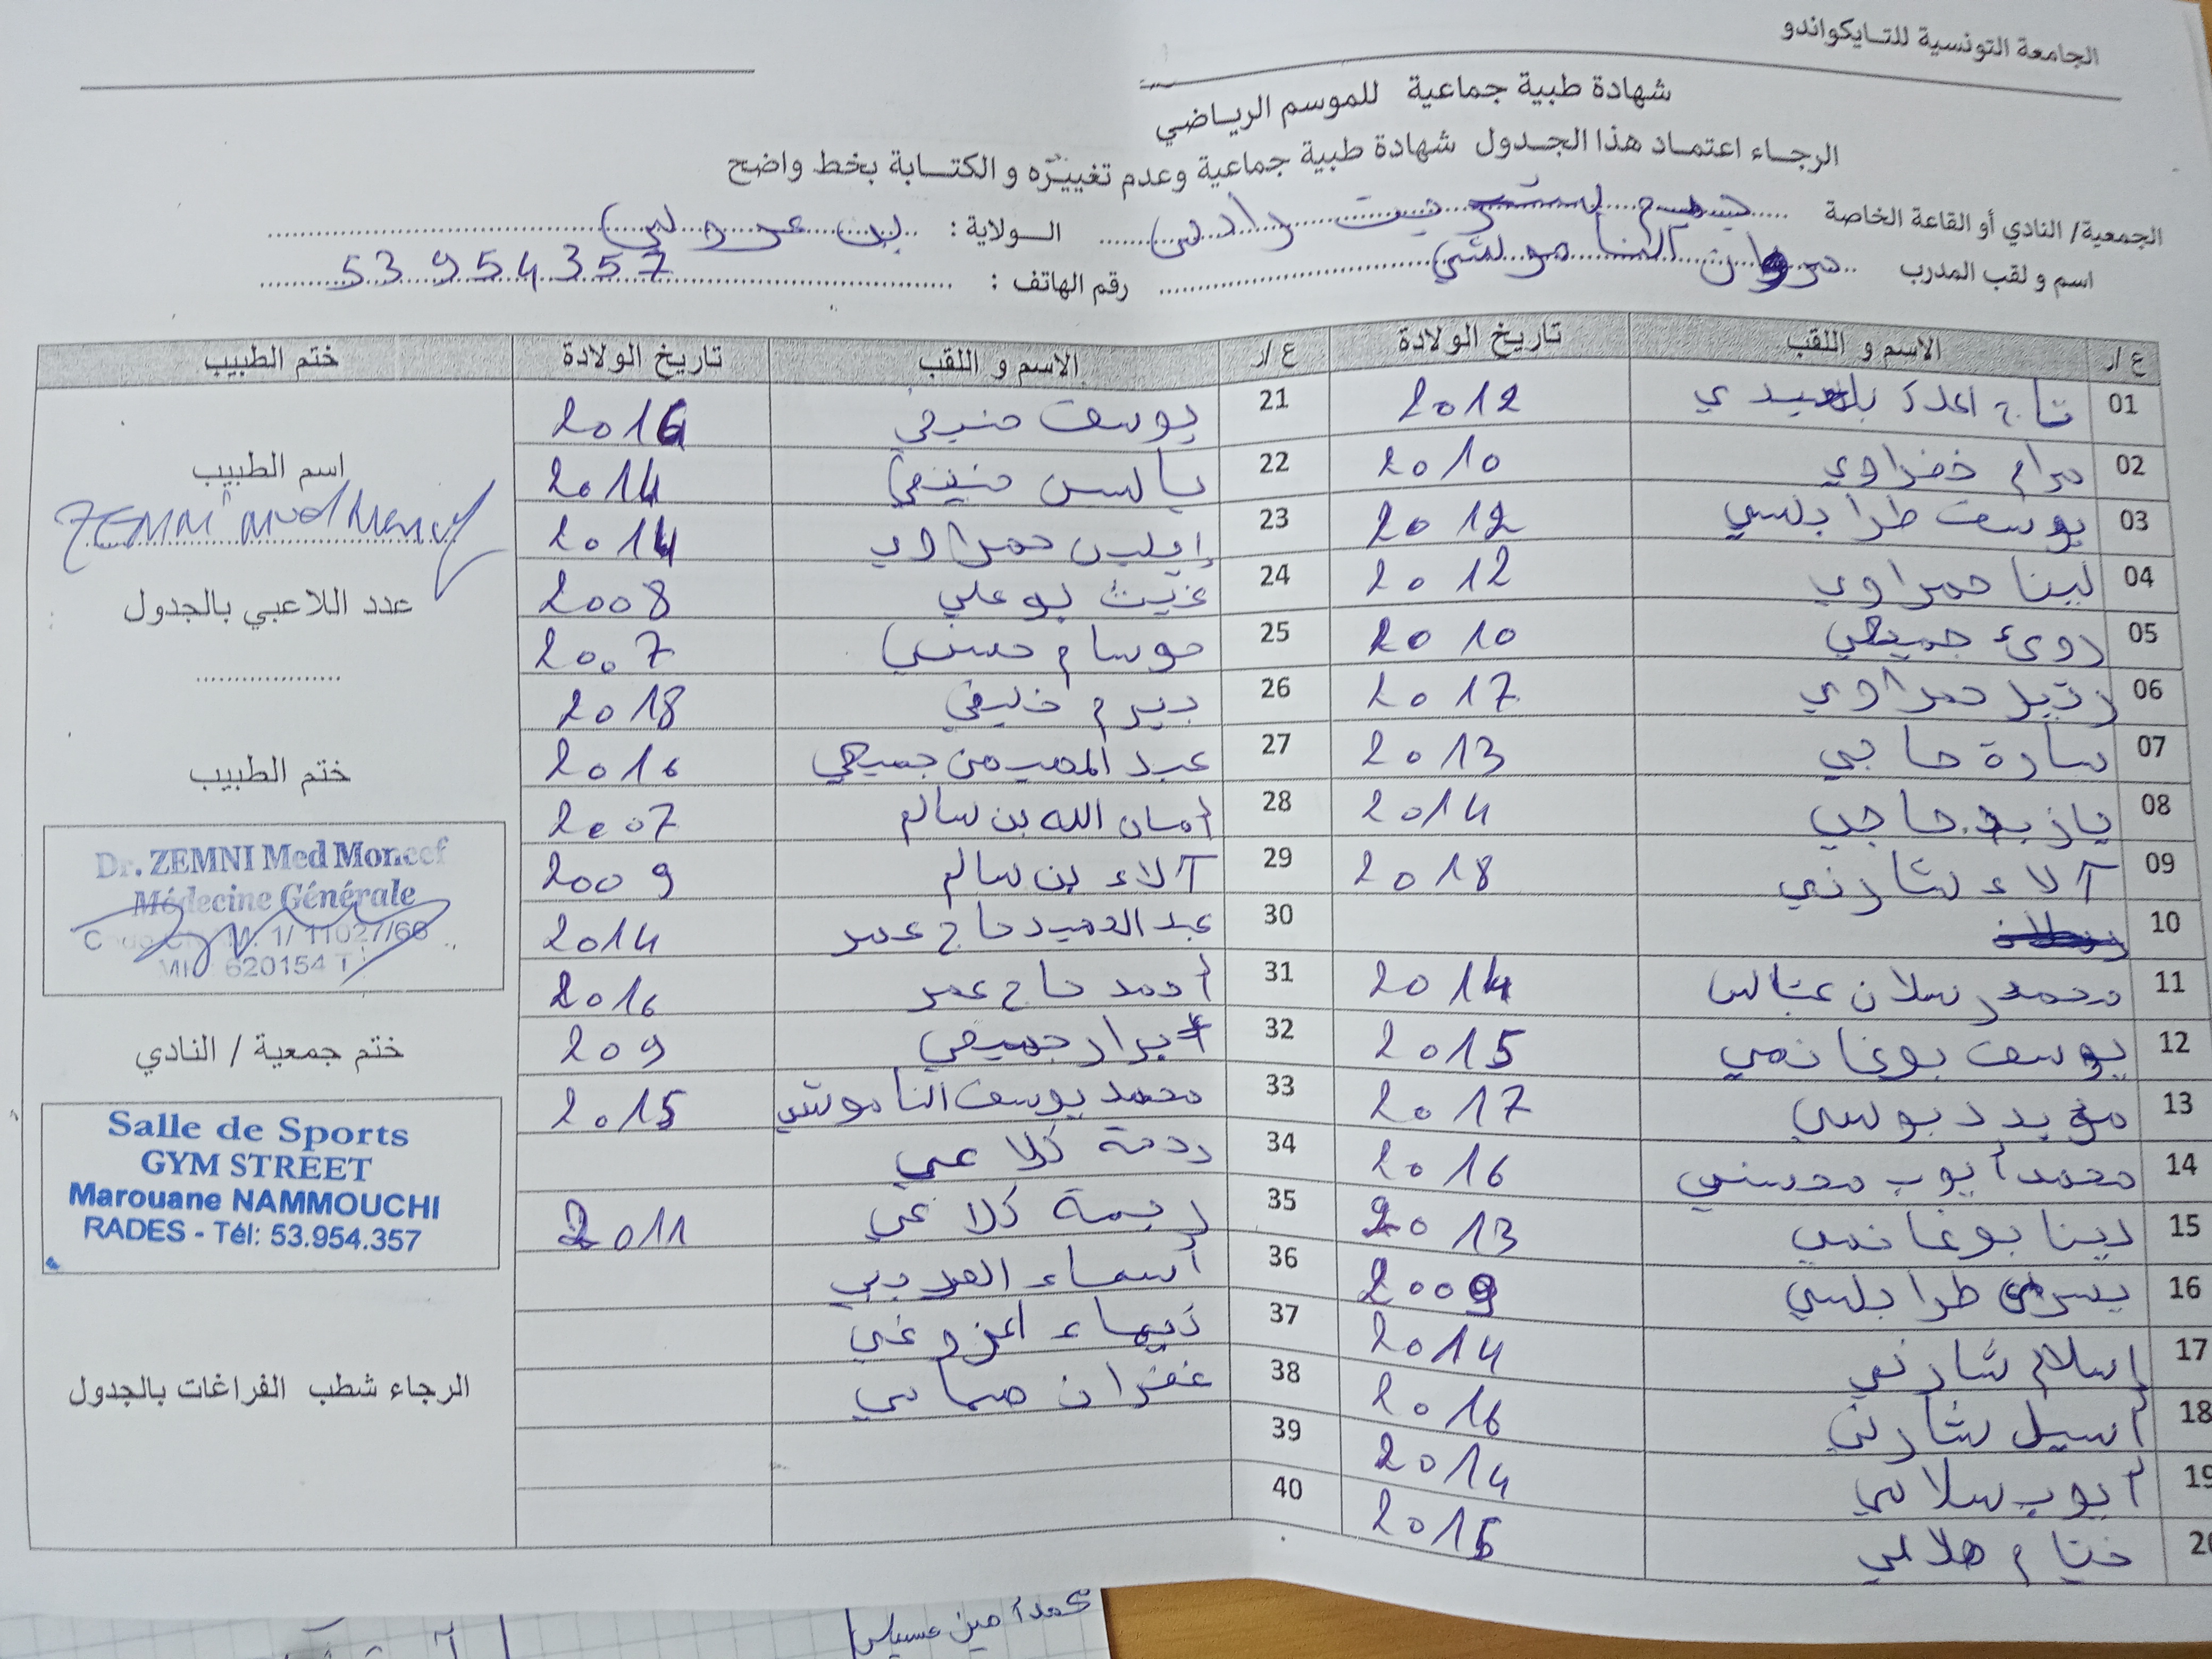 الجامعة التونسية للتـايكواندو
شهادة طبية جماعية للموسم الرياضي
الرجـاء اعتمـاد هذا الجـدول شهادة طبية جماعية وعدم تغييـره و الكتـابة بخط واضح
الجمعية/ النادي أو القاعة الخاصة جيم ستريت رادس الـولاية : بن عروس
اسم و لقب المدرب مروان الناموشي رقم الهاتف : 53 954 357
ع /ر الاسم و اللقب تاريخ الولادة ع /ر الاسم و اللقب تاريخ الولادة ختم الطبيب
01 2012
02 مرام خضراوي 2010
03 يوسف طرابلسي 2012
04 لينا حمراوي 2012
05 روئ جميعي 2010
06 حمراوي 2017
07 سارة حاجي 2013
08 يازيد حاجي 2014
09 آلاء شارني 2018
10
11 محمد رسلان عباس 2014
12 يوسف بوغانمي 2015
13 مؤيد دبوسي 2017
14 محمد أيوب محسني 2016
15 دينا بوغانمي 2013
16 يسرى طرابلسي 2009
17 إسلام شارني 2014
18 أسيل شارني 2016
19 أيوب سلامي 2014
20 ختام هلالي 2015
21 يوسف حنيفي 2016
22 ياسن حنيفي 2014
23 إيلين حمراوي 2014
24 غيث بوعلي 2008
25 حوسام حسني 2007
26 بيرم خليفي 2018
27 عبد المهيمن جميعي 2016
28 أمان الله بن سالم 2007
29 آلاء بن سالم 2009
30 عبد الحميد حاج عمر 2014
31 أحمد حاج عمر 2016
32 أبرار جميعي 209
33 محمد يوسف الناموشي 2015
34 رحمة كلاعي
35 ريمة كلاعي 2011
36 أسماء العريبي
37
38 غفران
39
40
اسم الطبيب
ZEMNI Med Moncef
عدد اللاعبي بالجدول
ختم الطبيب
Dr. ZEMNI Med Moncef
Médecine Générale
1/ 11027/66
620154 T
ختم جمعية / النادي
Salle de Sports
GYM STREET
Marouane NAMMOUCHI
RADES - Tél: 53.954.357
الرجاء شطب الفراغات بالجدول